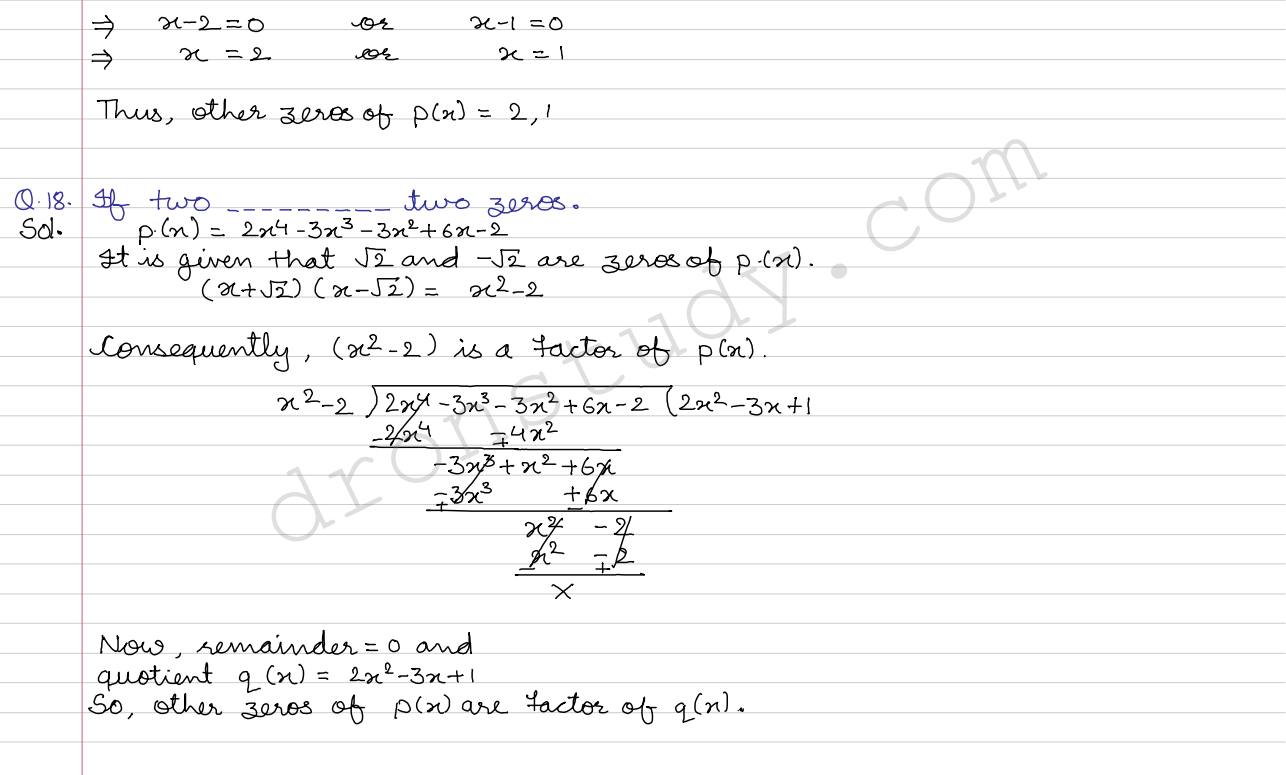 ⇒ x-2=0 or x-1=0
⇒ x = 2 or x = 1
Thus, other zeros of p(x) = 2,1
Q.18. If two _________ two zeros.
Sol. p.(x) = 2x⁴-3x³-3x²+6x-2
It is given that √2 and -√2 are zeros of p.(x).
(x+√2) (x-√2) = x²-2
Consequently, (x²-2) is a factor of p(x).
x²-2 ) 2x⁴-3x³-3x²+6x-2 ( 2x²-3x+1
-2x⁴ ∓4x²
-3x³+x²+6x
∓3x³ +6x
-
x² -2
x² -2
- +
X
Now, remainder = 0 and
quotient q(x) = 2x²-3x+1
So, other zeros of p(x) are factor of q(x).
dronstudy.com